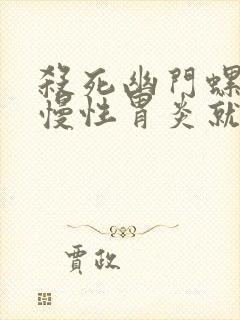 殺死幽門螺
慢性胃炎就
賈政